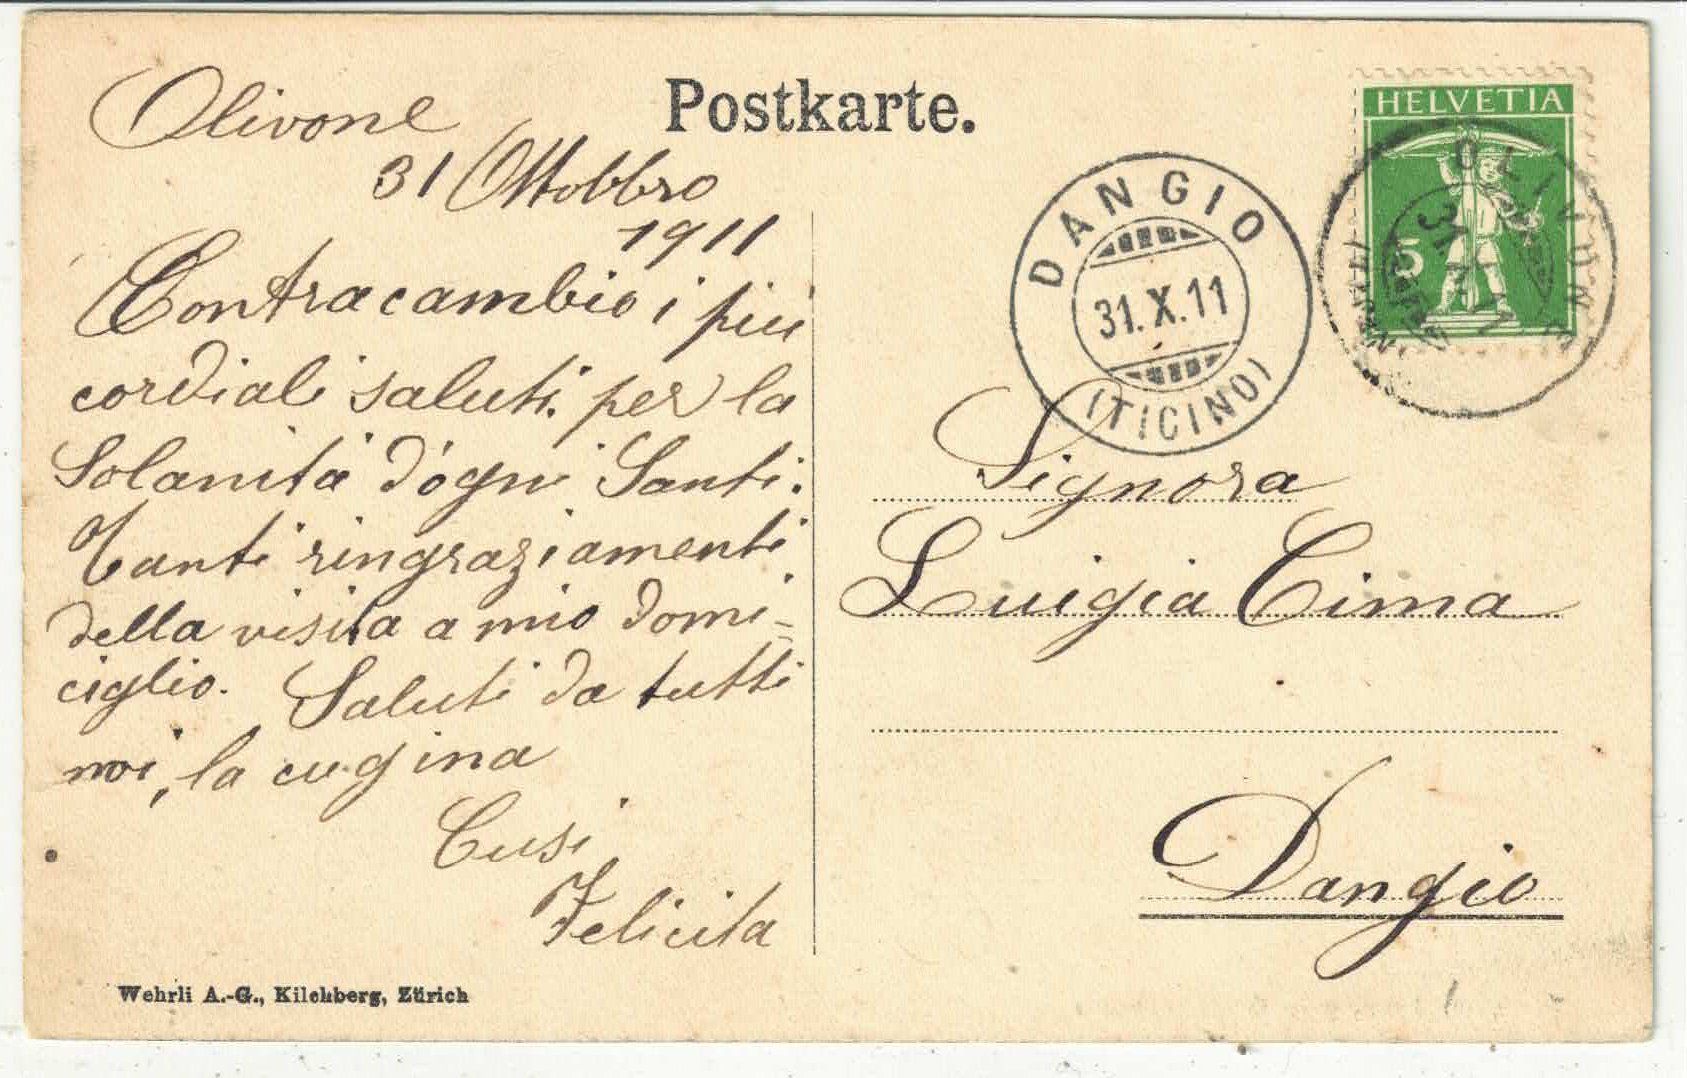 Olivone
31 Ottobbro
1911
Contracambio i piu
cordiali saluti. per la
Solanita d'ogni Santi.
Tanti ringraziamenti
della visita a mio domi-
ciglio. Saluti da tutti
noi, la cugina
Cusi
Felicita
Wehrli A.-G., Kilchberg, Zürich
Postkarte.
DANGIO
31.X.11
(TICINO)
HELVETIA
5
OLIVONE
Signora
Luigia Cima
Dangio